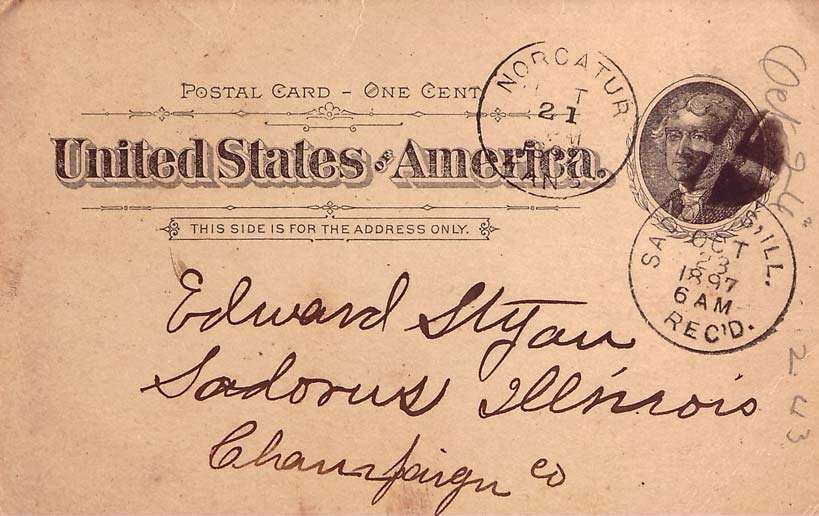 POSTAL CARD – ONE CENT
United States OF America.
THIS SIDE IS FOR THE ADDRESS ONLY.
NORCATUR
21
KANS
SA S, ILL.
OCT
23
1897
6 AM
REC'D.
Edward Styan
Sadorus Illinois
Champaign co
Oct 24"
243